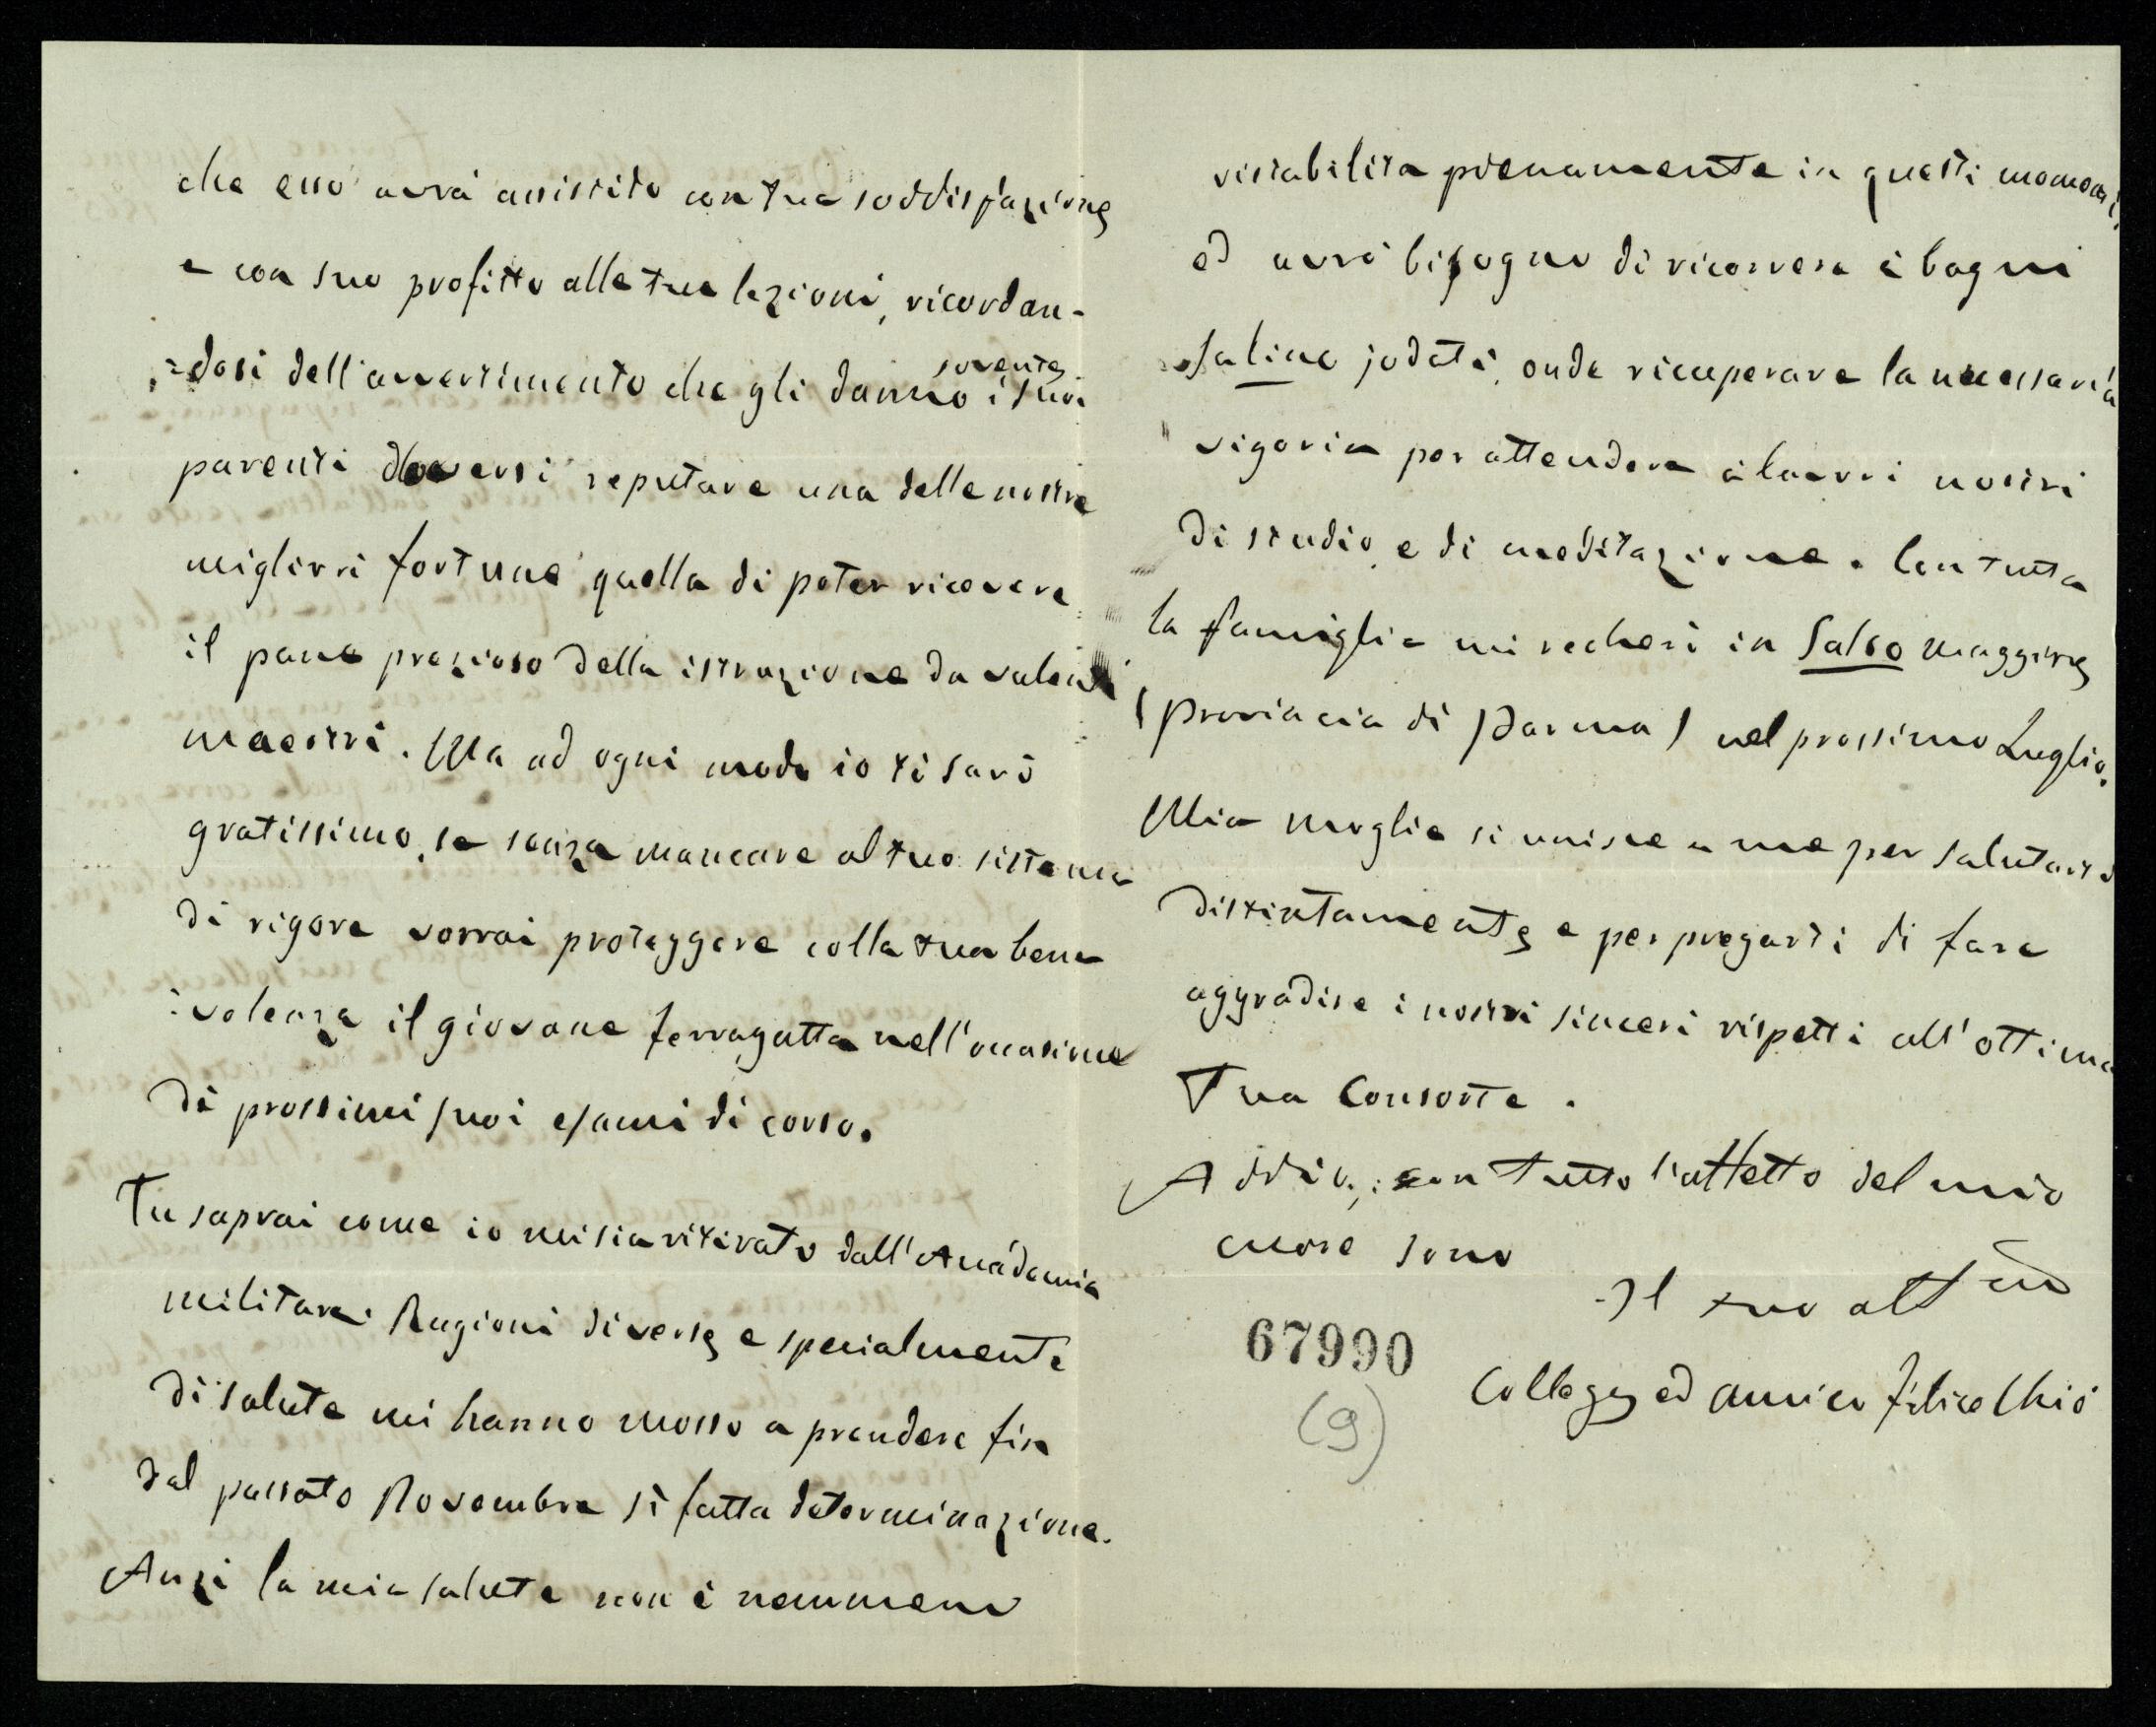 che esso avrà assistito con tua soddisfazione
e con suo profitto alle tue lezioni, ricordan-
=dosi dell'avvertimento che gli danno sovente i suoi
parenti doversi reputare una delle nostre
migliori fortune quella di poter ricevere
il pane prezioso della istruzione da valenti
maestri. Ma ad ogni modo io ti sarò
gratissimo, se senza mancare al tuo sistema
di rigore vorrai proteggere colla tua bene
=volenza il giovane Ferragatta nell'occasione
di prossimi suoi esami di corso.
Tu saprai come io mi sia ritirato dall'Accademia
militare. Ragioni diverse e specialmente
di salute mi hanno mosso a prendere fin
dal passato Novembre sì fatta determinazione.
Anzi la mia salute non è nemmeno
ristabilita pienamente in questi momenti,
ed avrò bisogno di ricorrere a bagni
salino jodati, onde ricuperare la necessaria
vigoria per attendere a lavori nostri
di studio, e di meditazione. Con tutta
la famiglia mi recherò in Salso maggiore
(Provincia di Parma) nel prossimo Luglio.
Mia moglie si unisce a me per salutarti
distintamente e per pregarti di fare
aggradire i nostri sinceri rispetti all'ottima
Tua Consorte.
Addio; con tutto l'affetto del mio
cuore sono
Il tuo aff.mo
Collega ed amico Felice Chiò
67990
(9)